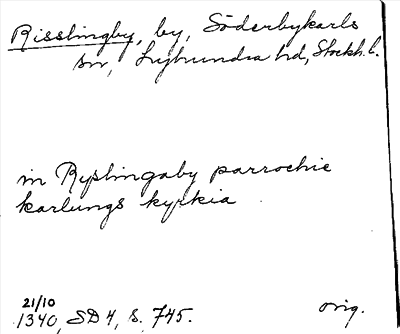 Risslingby, by, Söderbykarls
sn, Lyhundra hd, Stockh. l.
in Ryslingaby parrochie
karlungs kyrkia
21/10
1340, SD 4, s. 745.
orig.